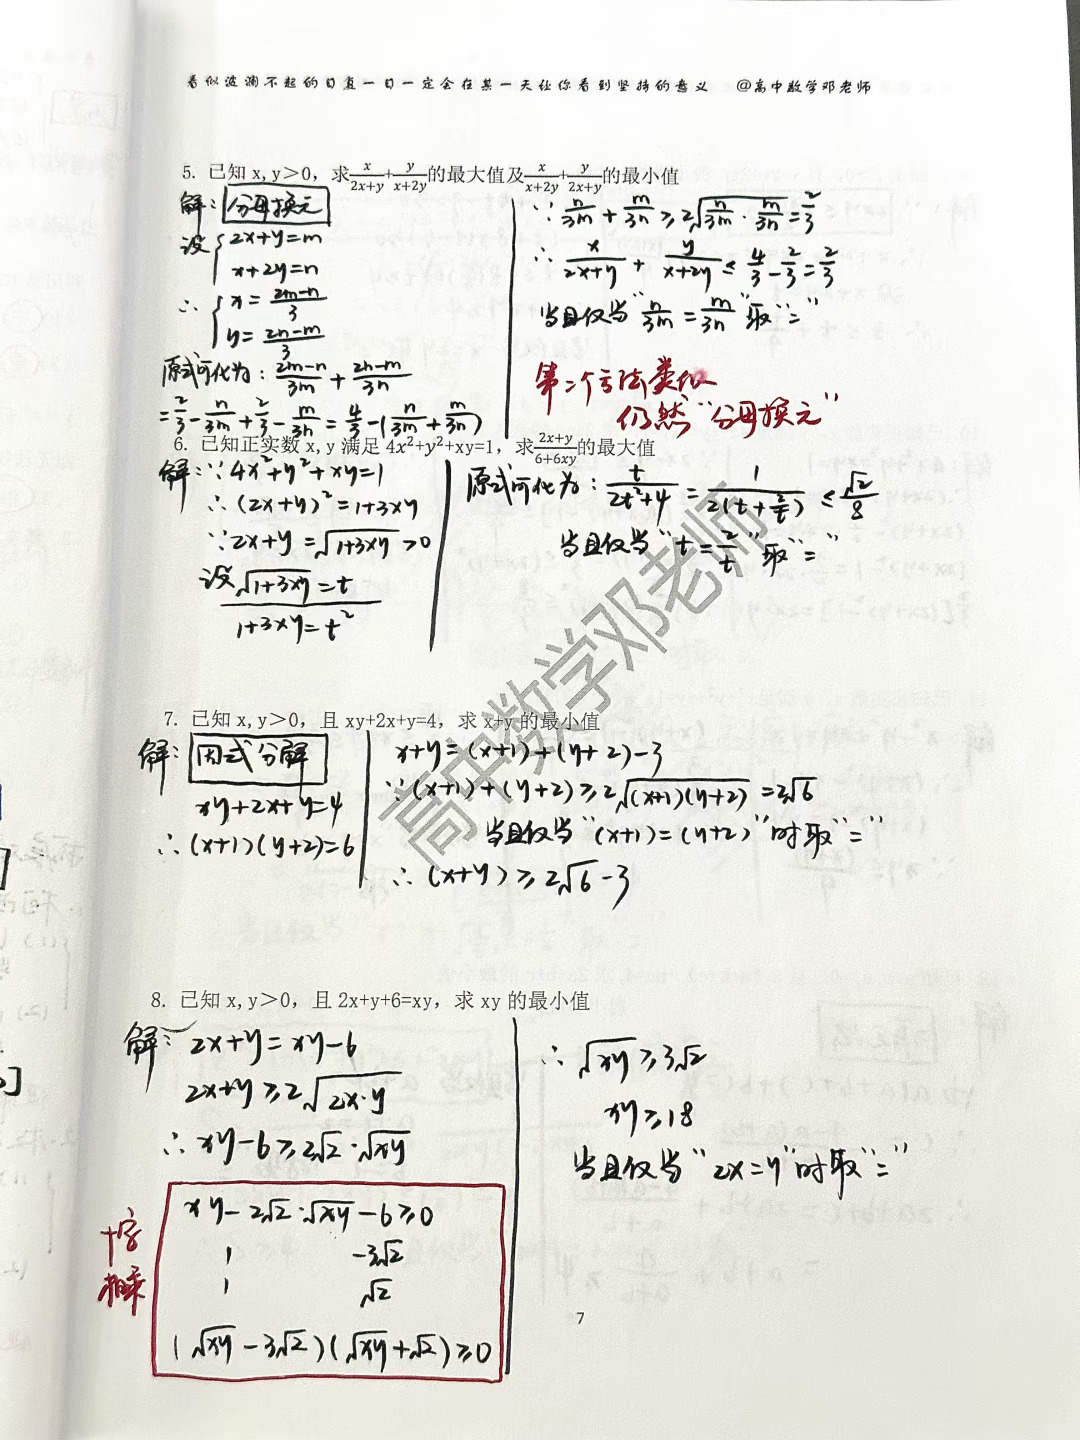 看似波澜不起的日复一日一定会在某一天让你看到坚持的意义 @高中数学邓老师
5. 已知 x,y＞0，求x/(2x+y)+y/(x+2y)的最大值及x/(x+2y)+y/(2x+y)的最小值
解：分母换元
设{2x+y=m
x+2y=n
∴{x=(2m-n)/3
y=(2n-m)/3
原式可化为：(2m-n)/3m+(2n-m)/3n
=2/3-n/3m+2/3-m/3n=4/3-(n/3m+m/3n)
∵n/3m+m/3n≥2√(n/3m·m/3n)=2/3
∴x/(2x+y)+y/(x+2y)≤4/3-2/3=2/3
当且仅当"n/3m=m/3n"取"="
第二个方法类似
仍然"分母换元"
6. 已知正实数 x,y 满足 4x²+y²+xy=1，求(2x+y)/(6+6xy)的最大值
解：∵4x²+y²+xy=1
∴(2x+y)²=1+3xy
∵2x+y=√(1+3xy)>0
设√(1+3xy)=t
1+3xy=t²
原式可化为：t/(2t²+4)=1/(2(t+2/t))≤√2/8
当且仅当"t=2/t"取"="
7. 已知 x,y＞0，且 xy+2x+y=4，求 x+y 的最小值
解：因式分解
xy+2x+y=4
∴(x+1)(y+2)=6
x+y=(x+1)+(y+2)-3
∵(x+1)+(y+2)≥2√((x+1)(y+2))=2√6
当且仅当"(x+1)=(y+2)"时取"="
∴(x+y)≥2√6-3
8. 已知 x,y＞0，且 2x+y+6=xy，求 xy 的最小值
解：2x+y=xy-6
2x+y≥2√(2x·y)
∴xy-6≥2√2·√xy
十字
相乘
xy-2√2·√xy-6≥0
1 -3√2
1 √2
(√xy-3√2)(√xy+√2)≥0
∴√xy≥3√2
xy≥18
当且仅当"2x=y"时取"="
7
高中数学邓老师